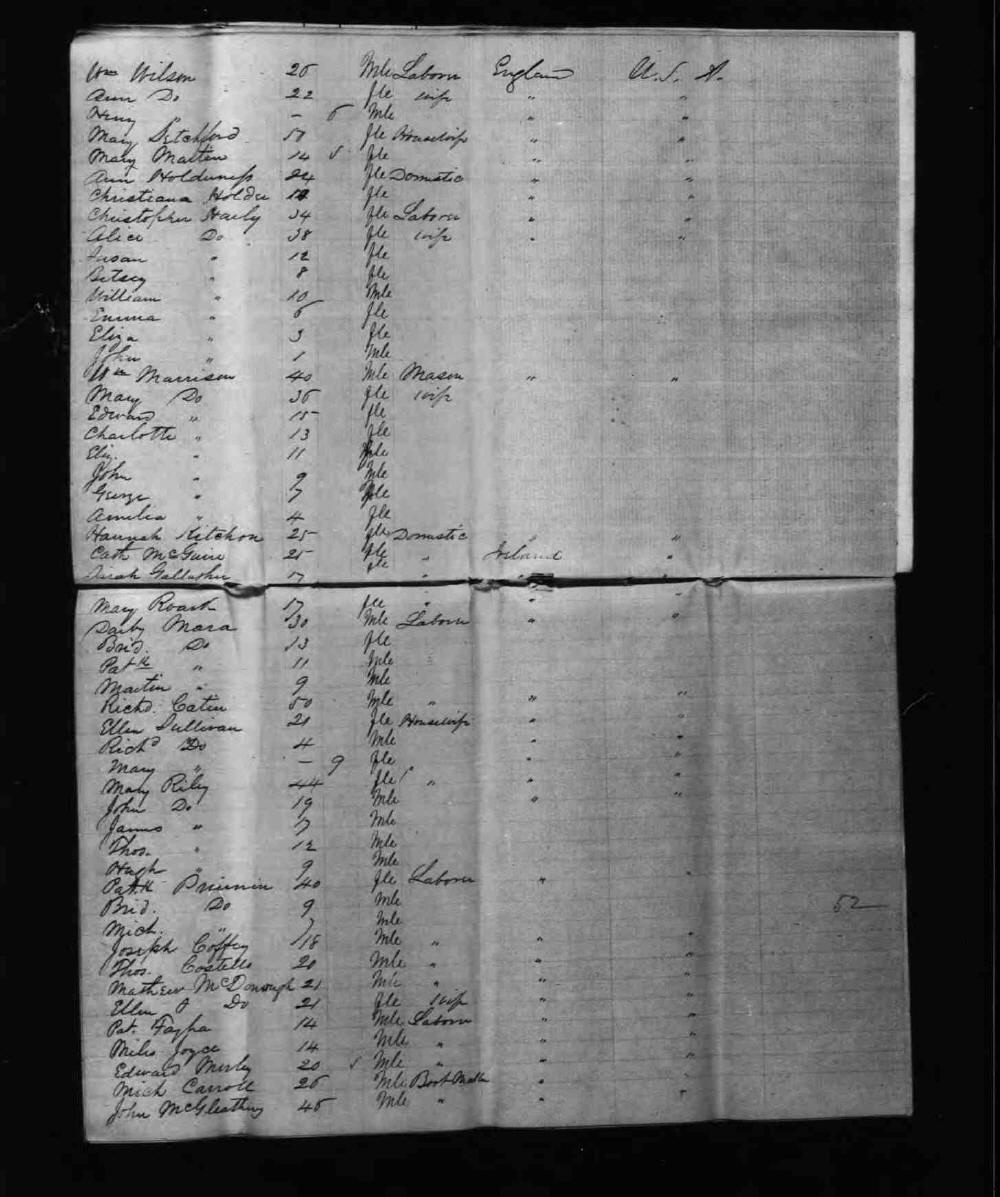 Wm Wilson 26 Mle Laborer England U.S.A.
Ann Do 22 fle wife " "
Henry " - 6 Mle " "
Mary Detchford 50 fle Housewife " "
Mary Martin 14 fle " "
Ann Holduness 24 fle Domestic " "
Christiana Holder fle " "
Christopher Harly 34 fle Laborer " "
Alice Do 38 fle wife " "
Susan " 12 fle
Betsey " 8 fle
William " 10 Mle
Emma " 6 fle
Eliza " 3 fle
John " 1 Mle
Wm Marrison 40 Mle Mason " "
Mary Do 36 fle wife
Edward " 15 fle
Charlotte " 13 fle
Eliz. " 11 fle
John " 9 Mle
George " 7 Mle
Amelia " 4 fle
Hannah Kitchon 25 fle Domestic " "
Cath McGuire 25 fle " Ireland "
Sarah Gallagher 17 fle " "
Mary Roark 17 fle " " "
Darby Mara 30 Mle Laborer " "
Brid. Do 13 fle
Patk " 11 Mle
Martin " 9 Mle
Richd. Catin 50 Mle " " "
Ellen Sullivan 21 fle Housewife " "
Richd Do 4 Mle " "
Mary " - 9 fle " "
Mary Riley 44 fle " " "
John Do 19 Mle " "
James " 7 Mle
Thos. " 12 Mle
Hugh " 9 Mle
Patk 40 fle Laborer " "
Brid. Do 9 Mle
52
Mich. " 7 Mle
Joseph Coffey 18 Mle " " "
Thos. Costello 20 Mle " " "
Mathew McDonough 21 Mle " " "
Ellen Do 21 fle wife " "
Pat. 14 Mle Laborer " "
Miles Joyce 14 Mle " " "
Edward 20 Mle " " "
Mich Carroll 26 Mle Boot " "
John 45 Mle " " "